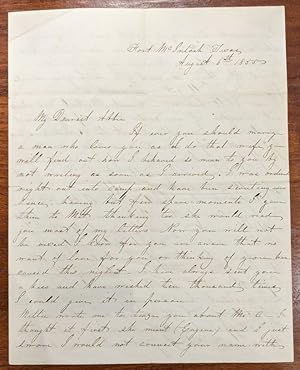 Fort McIntosh Texas
August 6th 1855
My Dearest Abbie
If ever you should marry
a man who loves you as I do that wife you
will find out how I behaved so mean to you by
not writing as soon as I I was ordered
right out into camp and have been scouting ever
since, having but few spare moments I gave
them to Mill thinking too she would read
you most of my letters Now you will not
be vexed I hope for you are aware that no
want of love for you, or thinking of you ever
caused this neglect I have always sent you
a kiss and have wished ten thousand times
I could give it in person
Millie wrote me to tease you about Mr. A - I
thought at first she meant and I just
swore I would not connect your name with